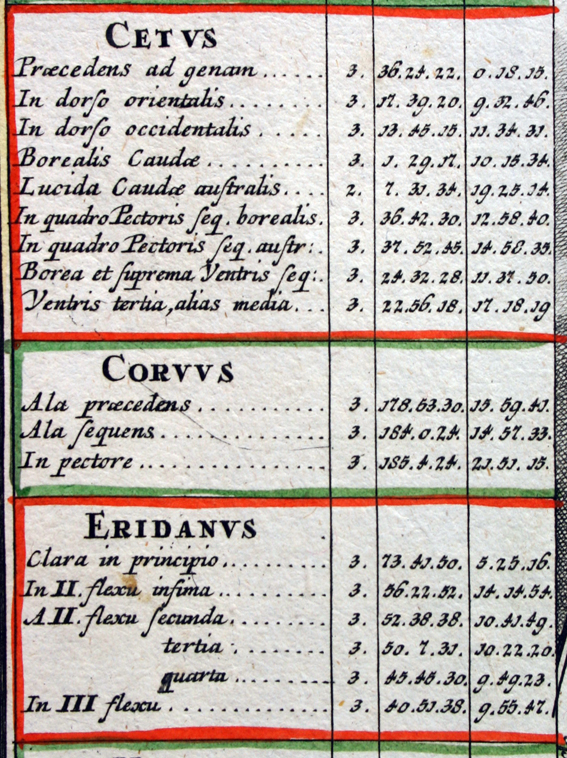 CETVS
Præcedens ad genam...... 3. 36.24.22. 0.18.15.
In dorſo orientalis....... 3. 17.39.20. 9.32.46.
In dorſo occidentalis..... 3. 13.45.15. 11.34.31.
Borealis Caudæ......... 3. 1.29.17. 10.15.34.
Lucida Caudæ auſtralis.... 2. 7.31.34. 19.25.14.
In quadro Pectoris ſeq. borealis. 3. 36.42.30. 12.58.40.
In quadro Pectoris ſeq. auſtr:. 3. 37.52.45. 14.58.35.
Borea et ſuprema Ventris ſeq:. 3. 24.32.28. 11.37.50.
Ventris tertia, alias media... 3. 22.56.18. 17.18.19
CORVVS
Ala præcedens........... 3. 178.53.30. 15.59.41.
Ala ſequens............. 3. 184.0.24. 14.57.33.
In pectore............... 3. 185.4.24. 21.51.15.
ERIDANVS
Clara in principio......... 3. 73.41.50. 5.25.16.
In II. flexu infima......... 3. 56.22.52. 14.14.54.
A II. flexu ſecunda........ 3. 52.38.38. 10.41.49.
tertia.......... 3. 50.7.31. 10.22.20.
quarta.......... 3. 45.45.30. 9.49.23.
In III flexu.............. 3. 40.51.38. 9.55.47.